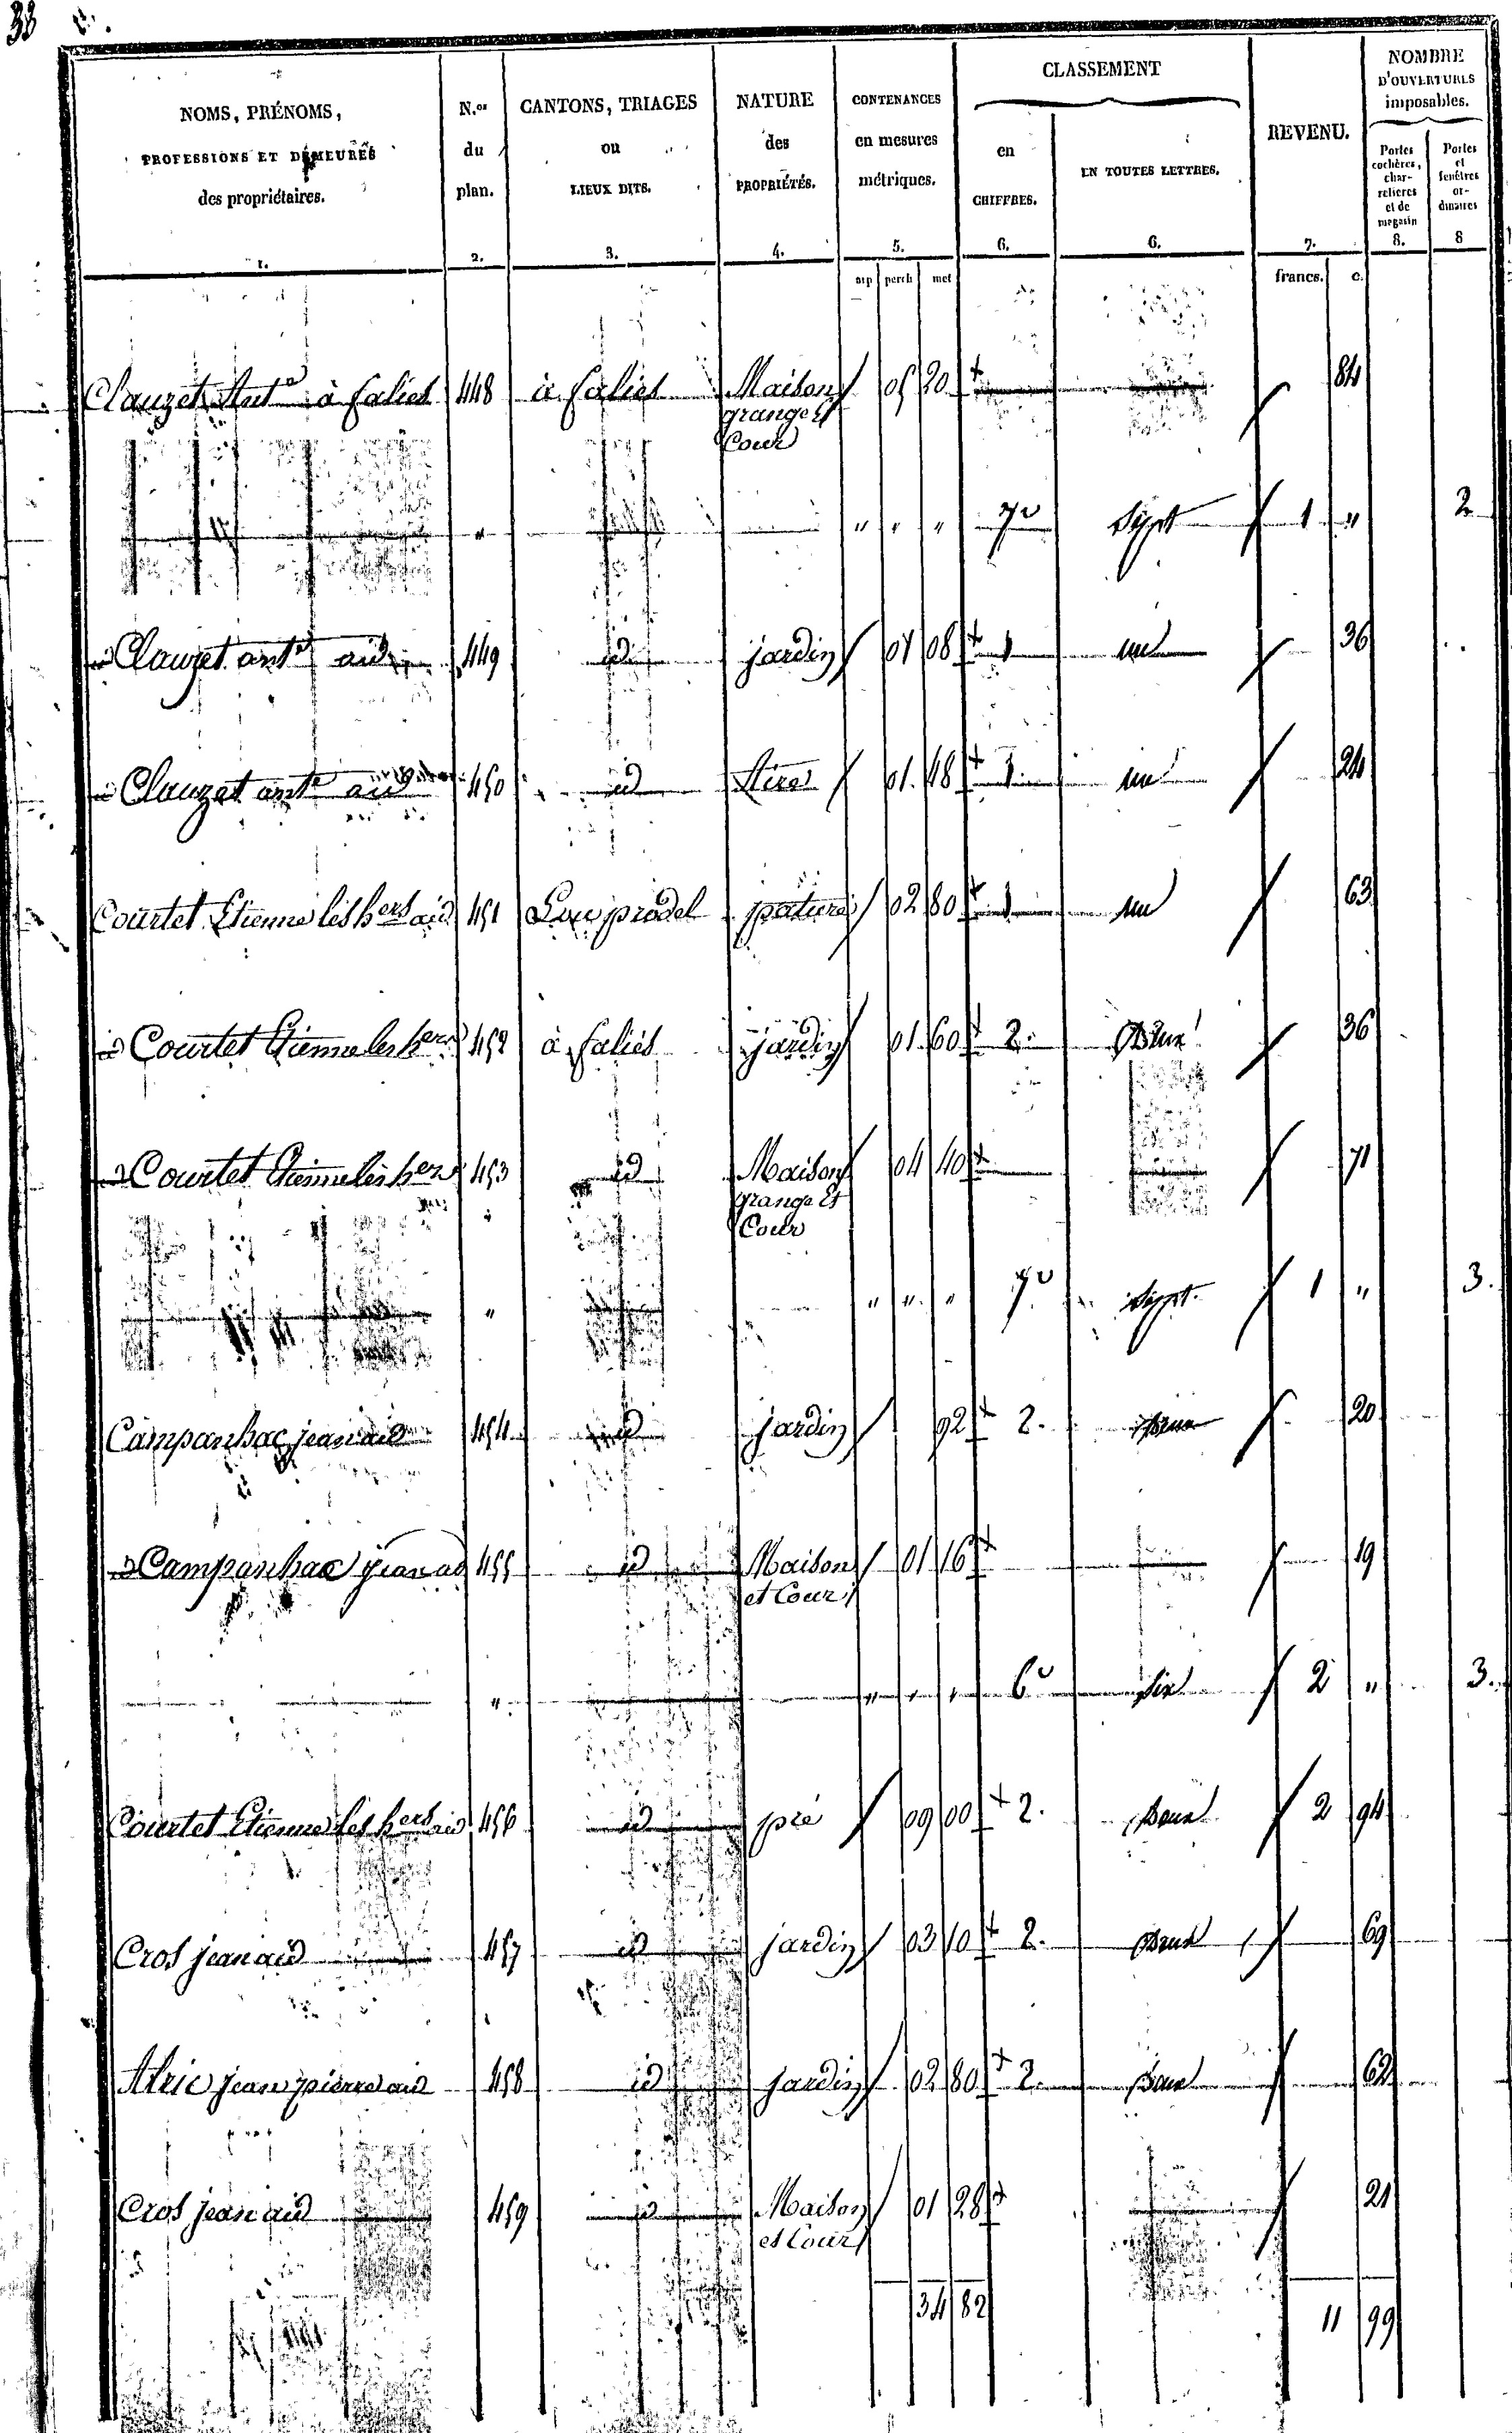 33
NOMS, PRÉNOMS, PROFESSIONS ET DEMEURES des propriétaires. 1.
N.os du plan. 2.
CANTONS, TRIAGES ou LIEUX DITS. 3.
NATURE des PROPRIÉTÉS. 4.
CONTENANCES en mesures métriques. 5.
CLASSEMENT
en CHIFFRES. 6.
EN TOUTES LETTRES. 6.
REVENU. 7.
NOMBRE D'OUVERTURES imposables.
Portes cochères, charretieres et de magasin 8.
Portes et fenêtres ordinaires 8
arp perch met francs. c.
Clauzet Ant.e à faliès 448 à faliès Maison 05 20 84
grange et
Cour
" " " " 7e Sept 1 " 2
id Clauzet ant.e aid. 449 id jardin 01 08 1 un 36
id Clauzet ant.e aid 450 id Aire 01 48 1 un 24
Courtet Etienne les hers aid 451 Lou pradel pature 02 80 1 un 63
id Courtet Etienne les hers 452 à faliès jardin 01 60 2. Deux 36
id Courtet Etienne les hers 453 id Maison 04 40 71
grange et
Cour
" " " " 7e Sept 1 " 3.
Campanhac jean aid 454 id jardin 92 2. Deux 20
id Campanhac jean aid 455 id Maison 01 16 19
et Cour
" " " " 6e Six 2 " 3.
Courtet Etienne les hers aid 456 id pré 09 00 2. Deux 2 94
Cros jean aid 457 id jardin 03 10 2. Deux 69
Alric jean pierre aid 458 id jardin 02 80 2. Deux 62
Cros jean aid 459 id Maison 01 28 21
et Cour
34 82 11 99